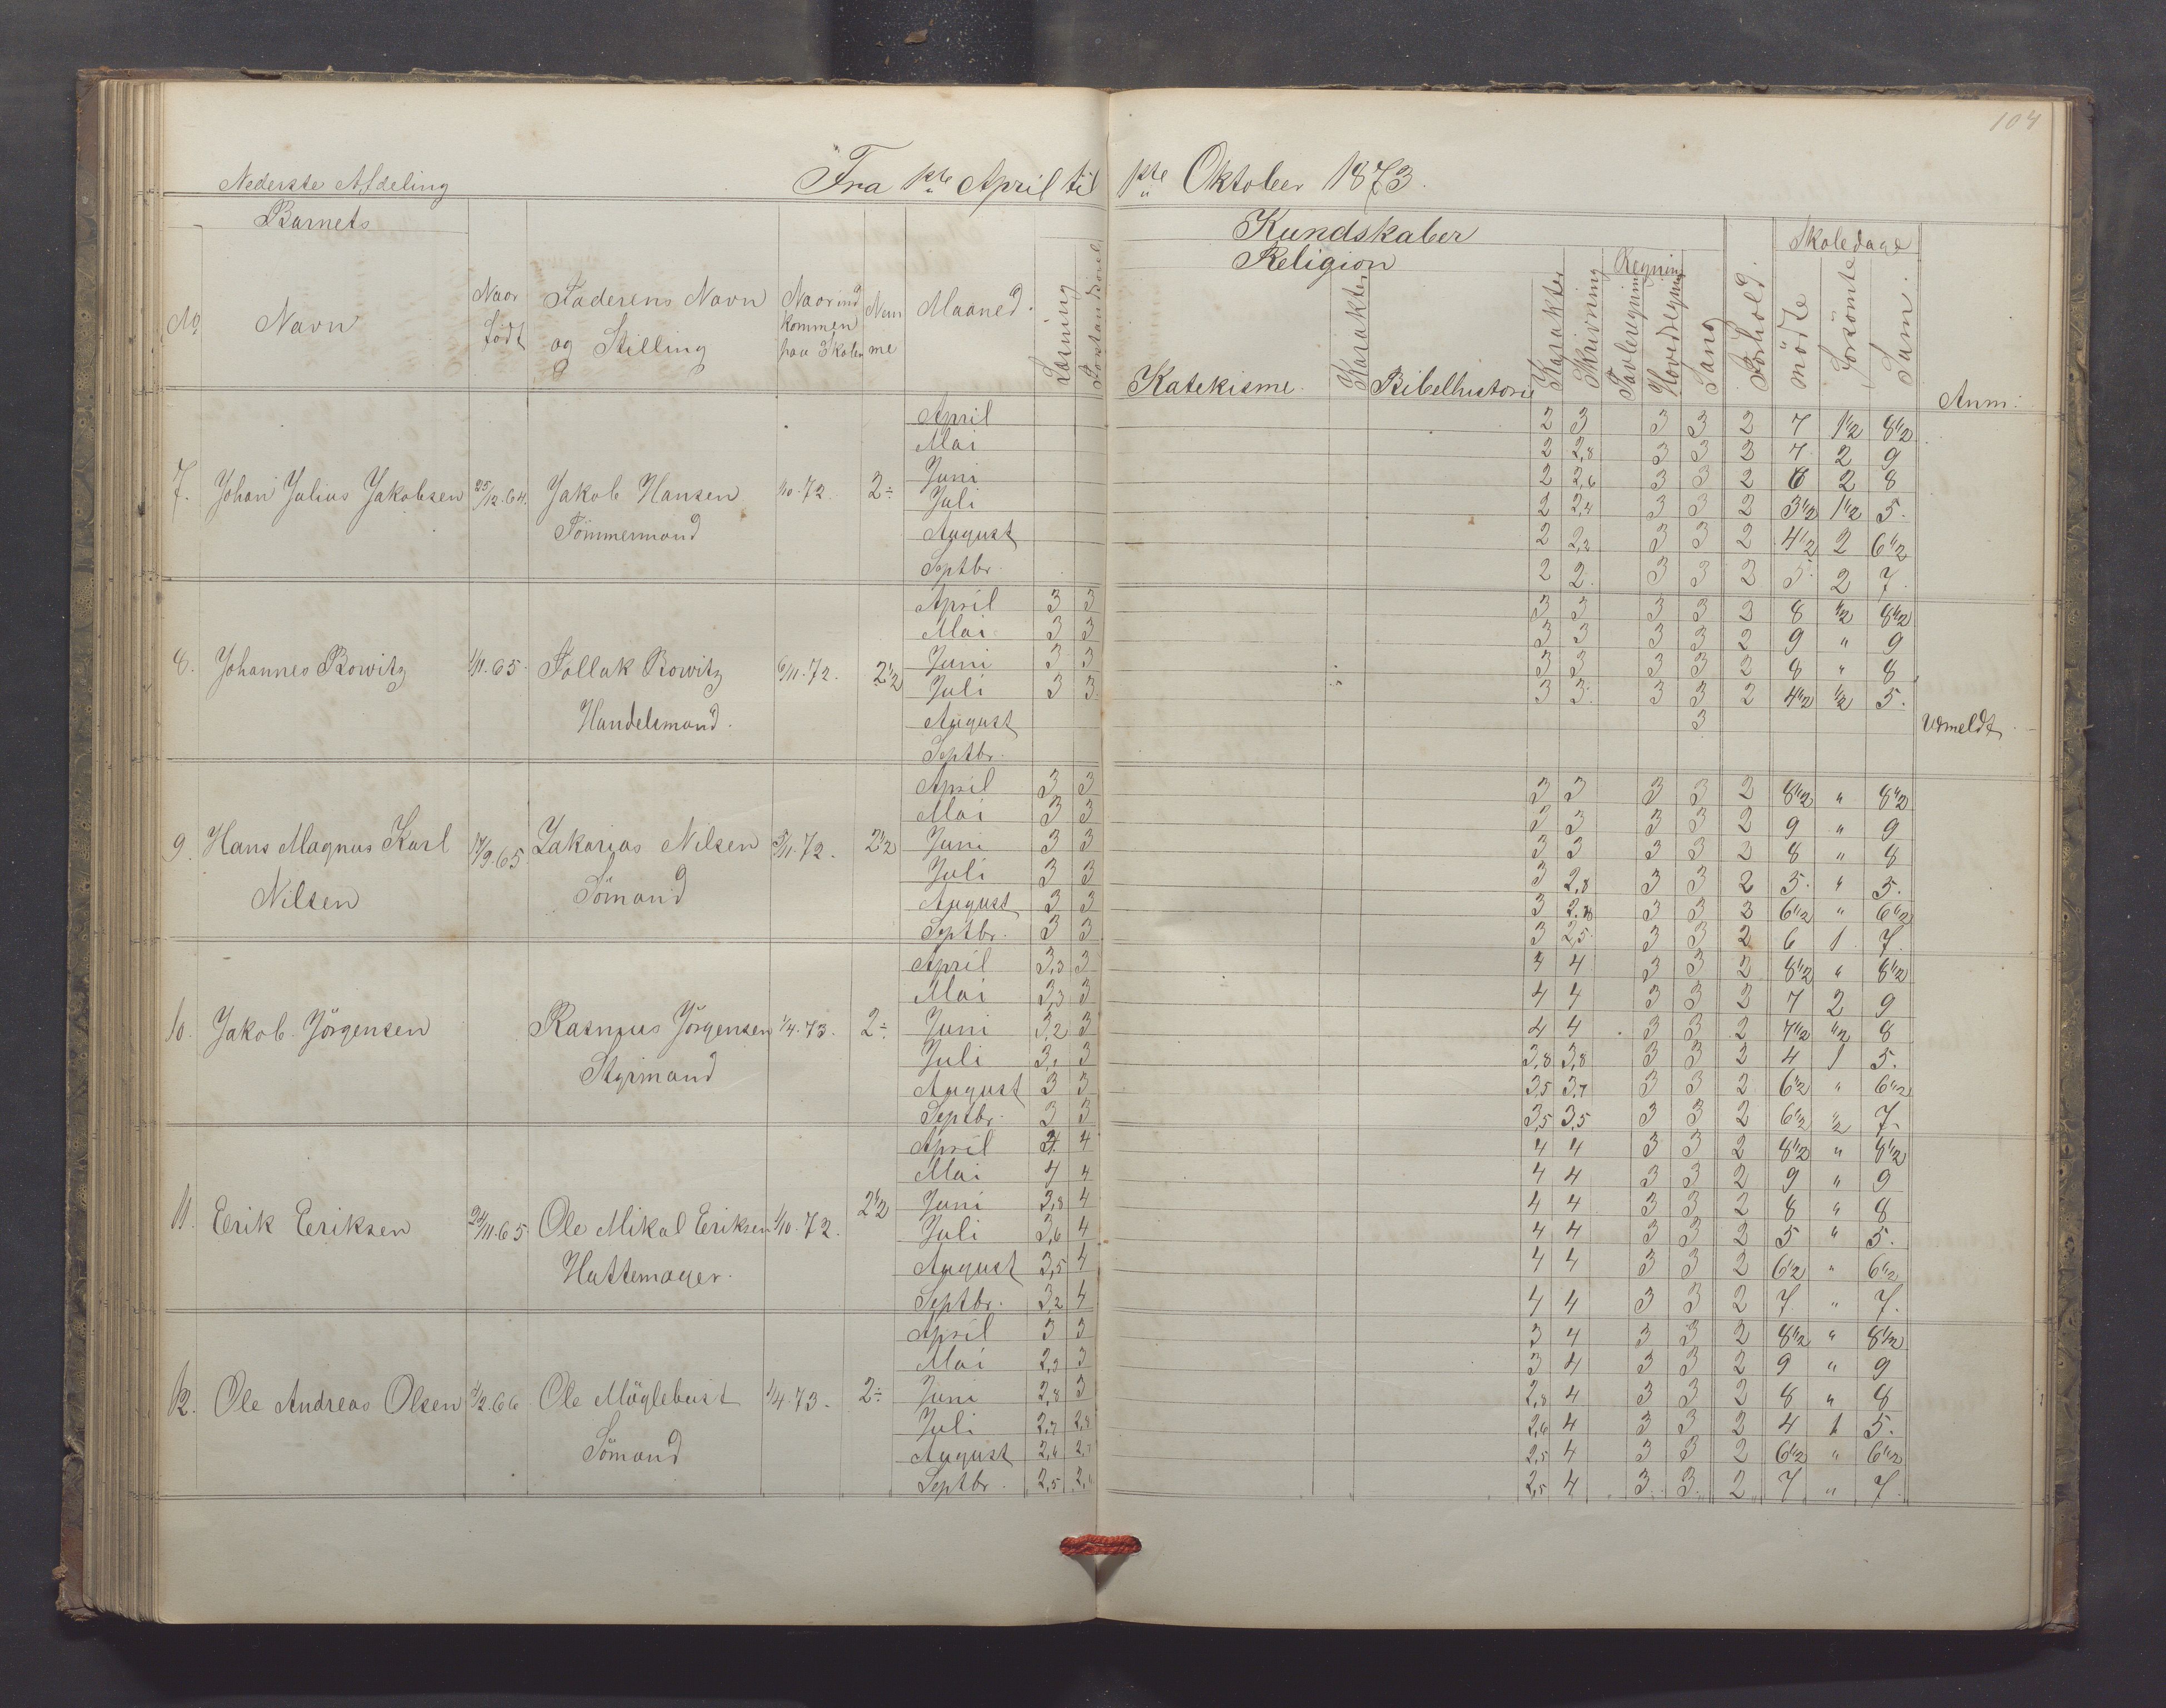 104
Nederste Afdeling
Fra 1ste April til 1ste Oktober 1873.
Barnets
Kundskaber
Skoledage
Religion
Regning
No Navn Naar født Faderens Navn og Stilling Naar ind kommen paa Skolen Num me Maaned. Læsning Forstandsövel Katekisme. Karakter Bibelhistorie Karakter Skrivning Tavleregning Hovedregning Sang Forhold. mödte Forsömte Sum. Anm:
April 2 3 3 3 2 7 1 1/2 8 1/2
Mai 2 2,8 3 3 2 7 2 9
7. Johan Julius Jakobsen 25/12.64. Jakob Hansen 1/10.72. 2÷ Juni 2 2,6 3 3 2 6 2 8
Juli 2 2,4 3 3 2 3 1/2 1 1/2 5.
Tömmermand August 2 2,2 3 3 2 4 1/2 2 6 1/2
Septbr. 2 2. 3 3 2 5. 2 7.
April 3 3 3 3 3 3 2 8 1/2 8 1/2
Mai 3 3 3 3 3 3 2 9 " 9
8. Johannes Rowitz 1/11.65. Tollak Rowitz 6/11.72. 2 1/2 Juni 3 3 3 3 3 3 2 8 " 8
Juli 3 3 3 3. 3 3 2 4 1/2 1/2 5.
Handelsmand. August 3 Udmeldt
Septbr.
April 3 3 3 3 3 3 2 8 1/2 " 8 1/2
Mai 3 3 3 3 3 3 2 9 " 9
9. Hans Magnus Karl 17/9.65 Zakarias Nilsen 5/11.72. 2 1/2 Juni 3 3 3 3 3 3 2 8 " 8
Juli 3 3 3 2,8 3 3 2 5. " 5.
Nilsen Sömand August 3 3 3 2,8 3 3 2 6 1/2 " 6 1/2
Septbr. 3 3 3 2,5. 3 3 2 6 1 7.
April 3,3 3 4 4 3 3 2 8 1/2 " 8 1/2
Mai 3,3 3 4 4 3 3 2 7 2 9
10. Jakob Jörgensen Rasmus Jörgensen 1/4.73. 2÷ Juni 3,2 3 4 4 3 3 2 7 1/2 1/2 8
Juli 3,1 3 3,8 3,8 3 3 2 4 1 5.
Styrmand August 3 3 3,5 3,7 3 3 2 6 1/2 " 6 1/2
Septbr. 3 3 3,5 3,5 3 3 2 6 1/2 1/2 7.
April 4 4 4 4 3 3 2 8 1/2 " 8 1/2
Mai 4 4 4 4 3 3 2 9 " 9
11. Eerik Eeriksen 24/11.65 Ole Mikal Eeriksen 1/10.72. 2 1/2 Juni 3,8 4 4 4 3 3 2 8 " 8
Juli 3,6 4 4 4 3 3 2 5 " 5.
Hattemager. August 3,5 4 4 4 3 3 2 6 1/2 " 6 1/2
Septbr. 3,2 4 4 4 3 3 2 7 " 7.
April 3 3 3 4 3 3 2 8 1/2 " 8 1/2
Mai 2,9 3 3 4 3 3 2 9 " 9
12. Ole Andreas Olsen 1/2.66 Ole Möglebust 1/4.73. 2÷ Juni 2,8 3 2,8 4 3 3 2 8 " 8
Juli 2,7 2,8 2,6 4 3 3 2 4 1 5.
Sömand August 2,6 2,7 2,5 4 3 3 2 6 1/2 " 6 1/2
Septbr. 2,5 2,5 4 3 3 2 7 " 7.